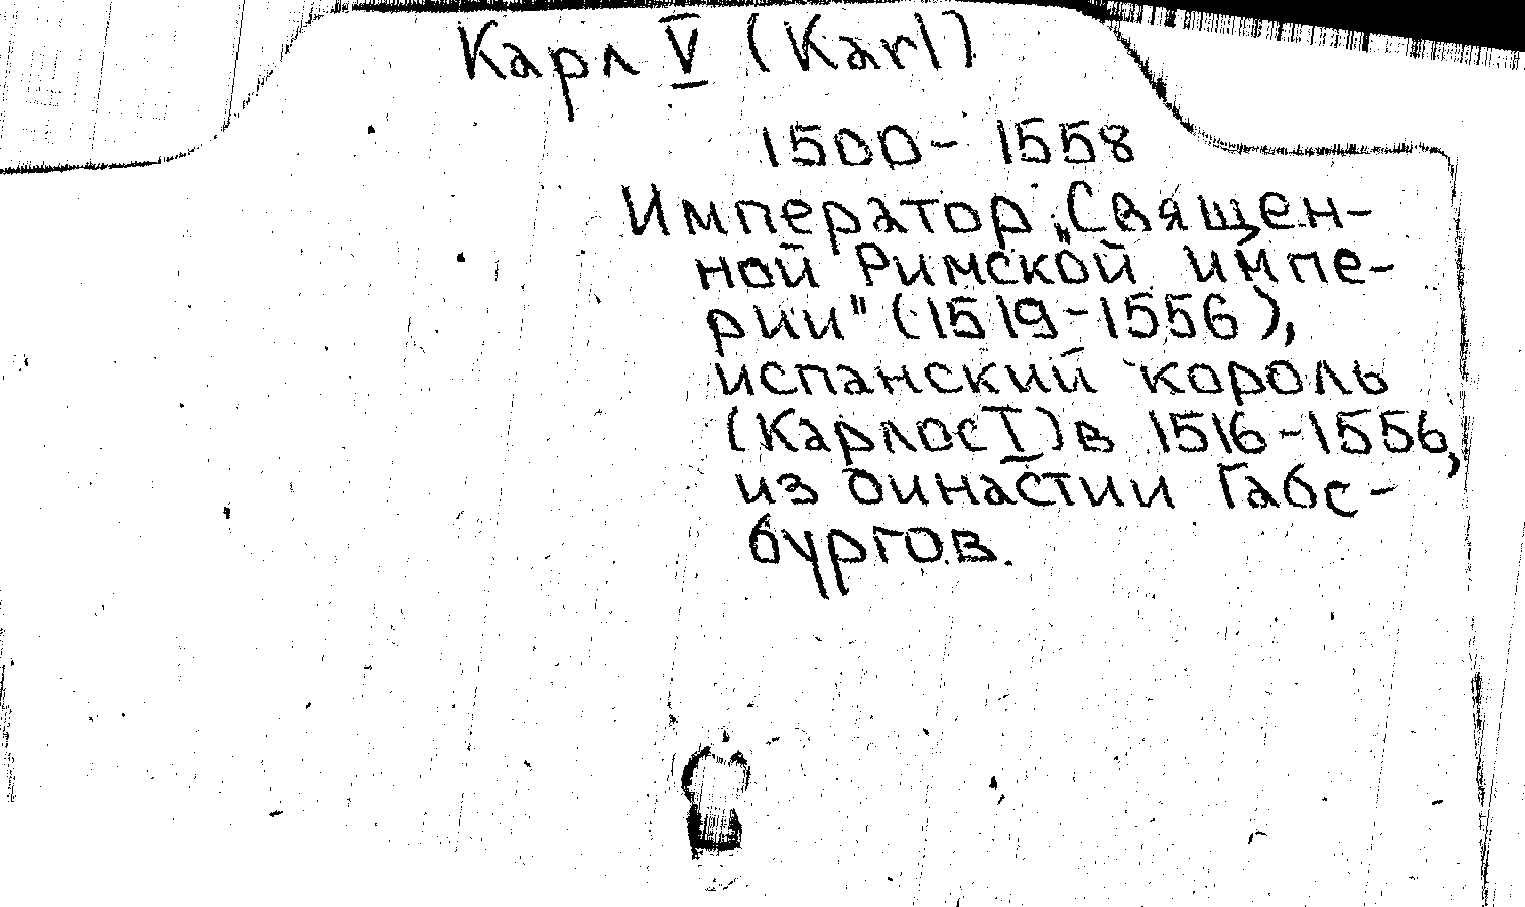 Карл V (Karl)
1500-1558
Император „Священ-
ной Римской импе-
рии" (1519-1556),
испанский король
(Карлос I) в 1516-1556,
из династии Габс-
бургов.